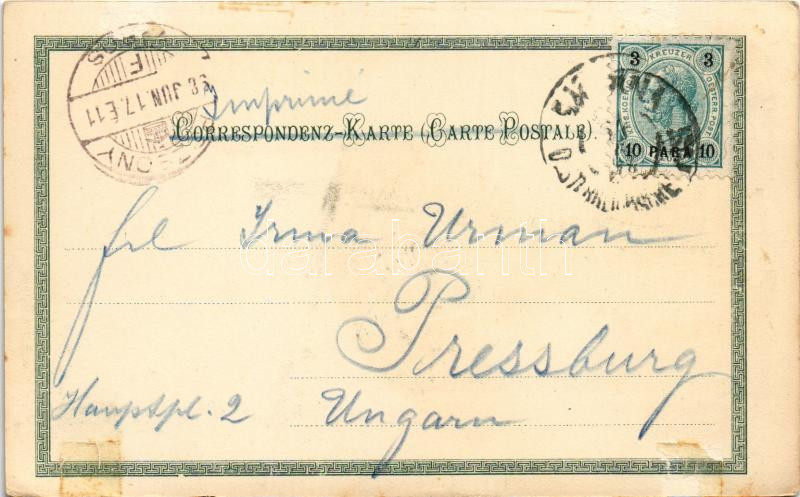 Imprimé
CORRESPONDENZ-KARTE (CARTE POSTALE).
3 KREUZER 3
10 PARA 10
98. JUN. 17. E. 11
Frl Irma Urman
darabanth
Pressburg
Hauptpl. 2 Ungarn